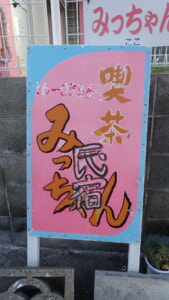 みっちゃん
喫茶
みっちゃん
民宿